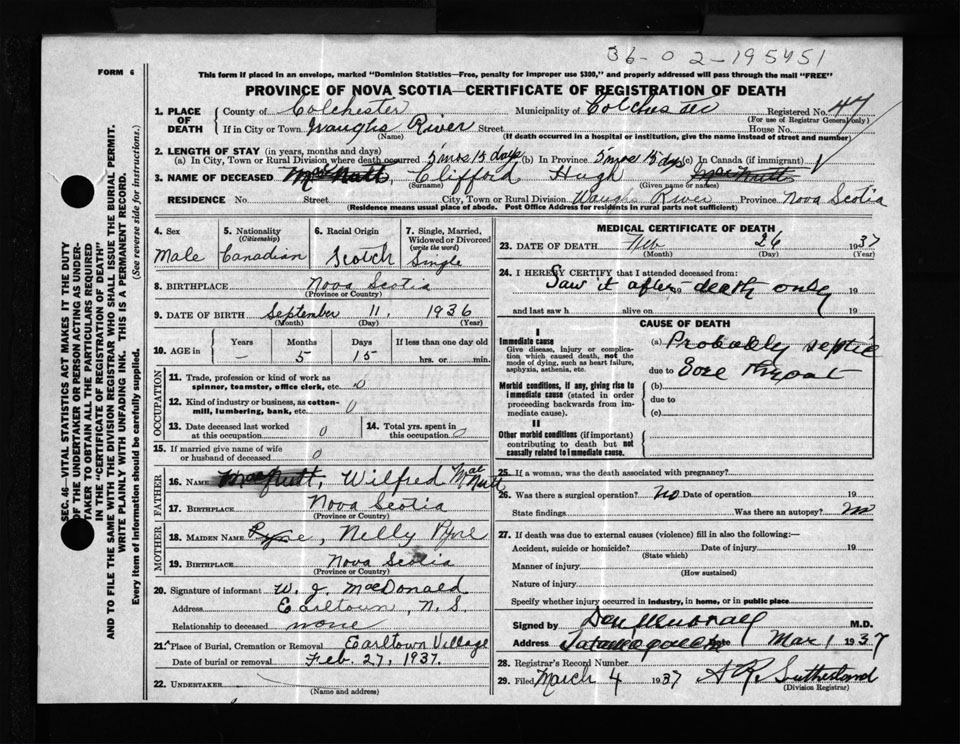 36-02-195451
FORM 6
This form if placed in an envelope, marked "Dominion Statistics—Free, penalty for improper use $300," and properly addressed will pass through the mail "FREE"
PROVINCE OF NOVA SCOTIA—CERTIFICATE OF REGISTRATION OF DEATH
1. PLACE OF DEATH
County of Colchester Municipality of Colchester Registered No. 47
(For use of Registrar General only)
If in City or Town Waughs River Street House No.
(Name) (If death occurred in a hospital or institution, give the name instead of street and number)
2. LENGTH OF STAY (in years, months and days)
(a) In City, Town or Rural Division where death occurred 5 mos 15 days (b) In Province 5 mos 15 dys (c) In Canada (if immigrant)
3. NAME OF DECEASED MacNutt, Clifford Hugh MacNutt
(Surname) (Given name or names)
RESIDENCE No. Street City, Town or Rural Division Waughs River Province Nova Scotia
(Residence means usual place of abode. Post Office Address for residents in rural parts not sufficient)
4. Sex
Male
5. Nationality
(Citizenship)
Canadian
6. Racial Origin
Scotch
7. Single, Married, Widowed or Divorced
(write the word)
Single
8. BIRTHPLACE Nova Scotia
(Province or Country)
9. DATE OF BIRTH September 11, 1936
(Month) (Day) (Year)
10. AGE in Years Months Days If less than one day old
– 5 15 hrs. or min.
OCCUPATION
11. Trade, profession or kind of work as
spinner, teamster, office clerk, etc. 0
12. Kind of industry or business, as cotton-
mill, lumbering, bank, etc. 0
13. Date deceased last worked
at this occupation 0
14. Total yrs. spent in
this occupation 0
15. If married give name of wife
or husband of deceased 0
FATHER
16. NAME MacNutt, Wilfred MacNutt
17. BIRTHPLACE Nova Scotia
(Province or Country)
MOTHER
18. MAIDEN NAME Pyne, Nelly
19. BIRTHPLACE Nova Scotia
(Province or Country)
20. Signature of informant W. J. MacDonald
Address Earltown, N. S.
Relationship to deceased none
21. Place of Burial, Cremation or Removal Earltown Village
Date of burial or removal Feb. 27, 1937.
22. UNDERTAKER
(Name and address)
MEDICAL CERTIFICATE OF DEATH
23. DATE OF DEATH Feb 26 1937
(Month) (Day) (Year)
24. I HEREBY CERTIFY that I attended deceased from:
Saw it after death only
19 19
and last saw h alive on 19
CAUSE OF DEATH
I
Immediate cause
Give disease, injury or complica-
tion which caused death, not the
mode of dying, such as heart failure,
asphyxia, asthenia, etc.
(a) Probably septic
due to Sore Throat
Morbid conditions, if any, giving rise to
immediate cause (stated in order
proceeding backwards from im-
mediate cause).
(b)
due to
(c)
II
Other morbid conditions (if important)
contributing to death but not
causally related to immediate cause.
25. If a woman, was the death associated with pregnancy?
26. Was there a surgical operation? no Date of operation 19
State findings Was there an autopsy? no
27. If death was due to external causes (violence) fill in also the following:—
Accident, suicide or homicide? Date of injury 19
(State which)
Manner of injury
(How sustained)
Nature of injury
Specify whether injury occurred in industry, in home, or in public place
Signed by Dan Murray M.D.
Address Tatamagouche Date Mar 1 1937
28. Registrar's Record Number
29. Filed March 4 1937 A R. Sutherland
(Division Registrar)
SEC. 46—VITAL STATISTICS ACT MAKES IT THE DUTY
OF THE UNDERTAKER OR PERSON ACTING AS UNDER-
TAKER TO OBTAIN ALL THE PARTICULARS REQUIRED
IN THE "CERTIFICATE OF REGISTRATION OF DEATH"
AND TO FILE THE SAME WITH THE DIVISION REGISTRAR WHO SHALL ISSUE THE BURIAL PERMIT.
WRITE PLAINLY WITH UNFADING INK. THIS IS A PERMANENT RECORD.
Every item of Information should be carefully supplied. (See reverse side for instructions.)